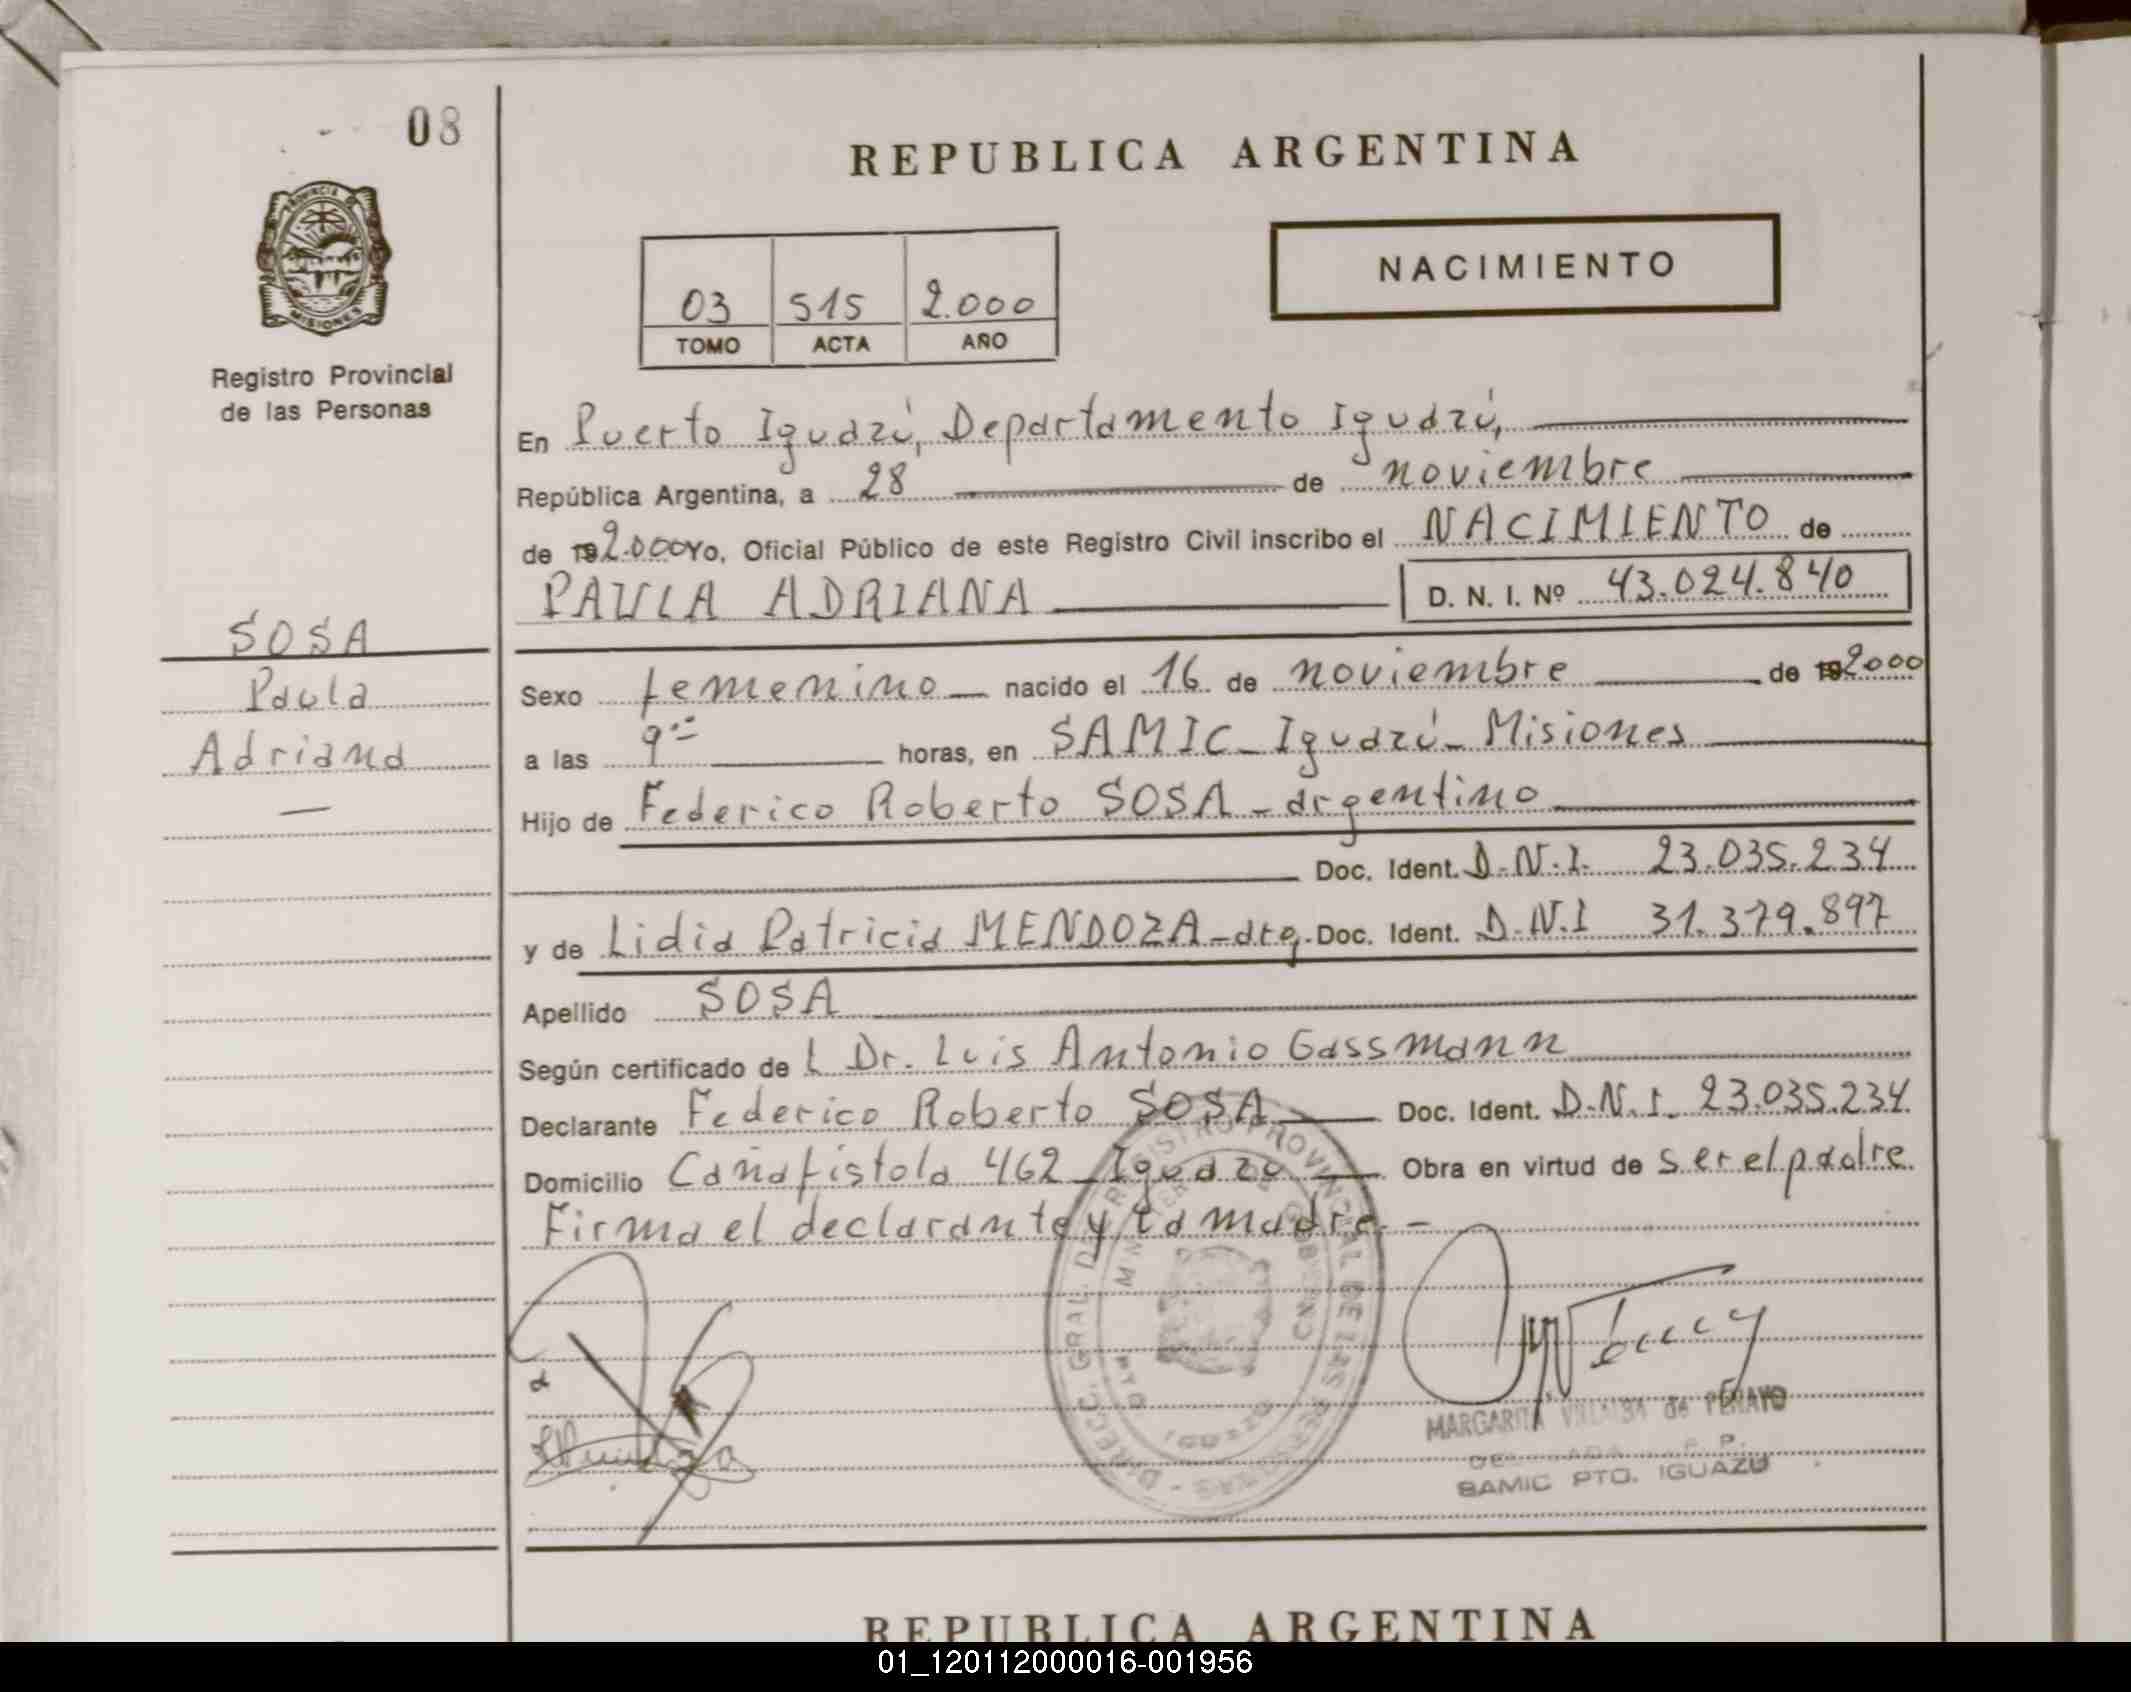 08
REPUBLICA ARGENTINA
PROVINCIA
MISIONES
Registro Provincial
de las Personas
03 515 2.000
TOMO ACTA AÑO
NACIMIENTO
En Puerto Iguazú, Departamento Iguazú,
República Argentina, a 28 de noviembre
de 192.000 Yo, Oficial Público de este Registro Civil inscribo el NACIMIENTO de
PAULA ADRIANA D. N. I. Nº 43.024.840
SOSA
Paula
Adriana
Sexo femenino nacido el 16 de noviembre de 192000
a las 9 horas, en SAMIC - Iguazú - Misiones
Hijo de Federico Roberto SOSA - argentino
Doc. Ident. D.N.I. 23.035.234
y de Lidia Patricia MENDOZA - arg. Doc. Ident. D.N.I 31.379.897
Apellido SOSA
Según certificado de l Dr. Luis Antonio Gassmann
Declarante Federico Roberto SOSA Doc. Ident. D.N.I. 23.035.234
Domicilio Cañafistola 462 Iguazu Obra en virtud de ser el padre
Firma el declarante y la madre. -
DIRECC. GRAL. DEL REGISTRO PROVINCIAL DE LAS PERSONAS
MINISTERIO DE GOBIERNO
IGUAZU
MARGARITA VILLALBA de PERAYO
SAMIC PTO. IGUAZU
REPUBLICA ARGENTINA
01_120112000016-001956